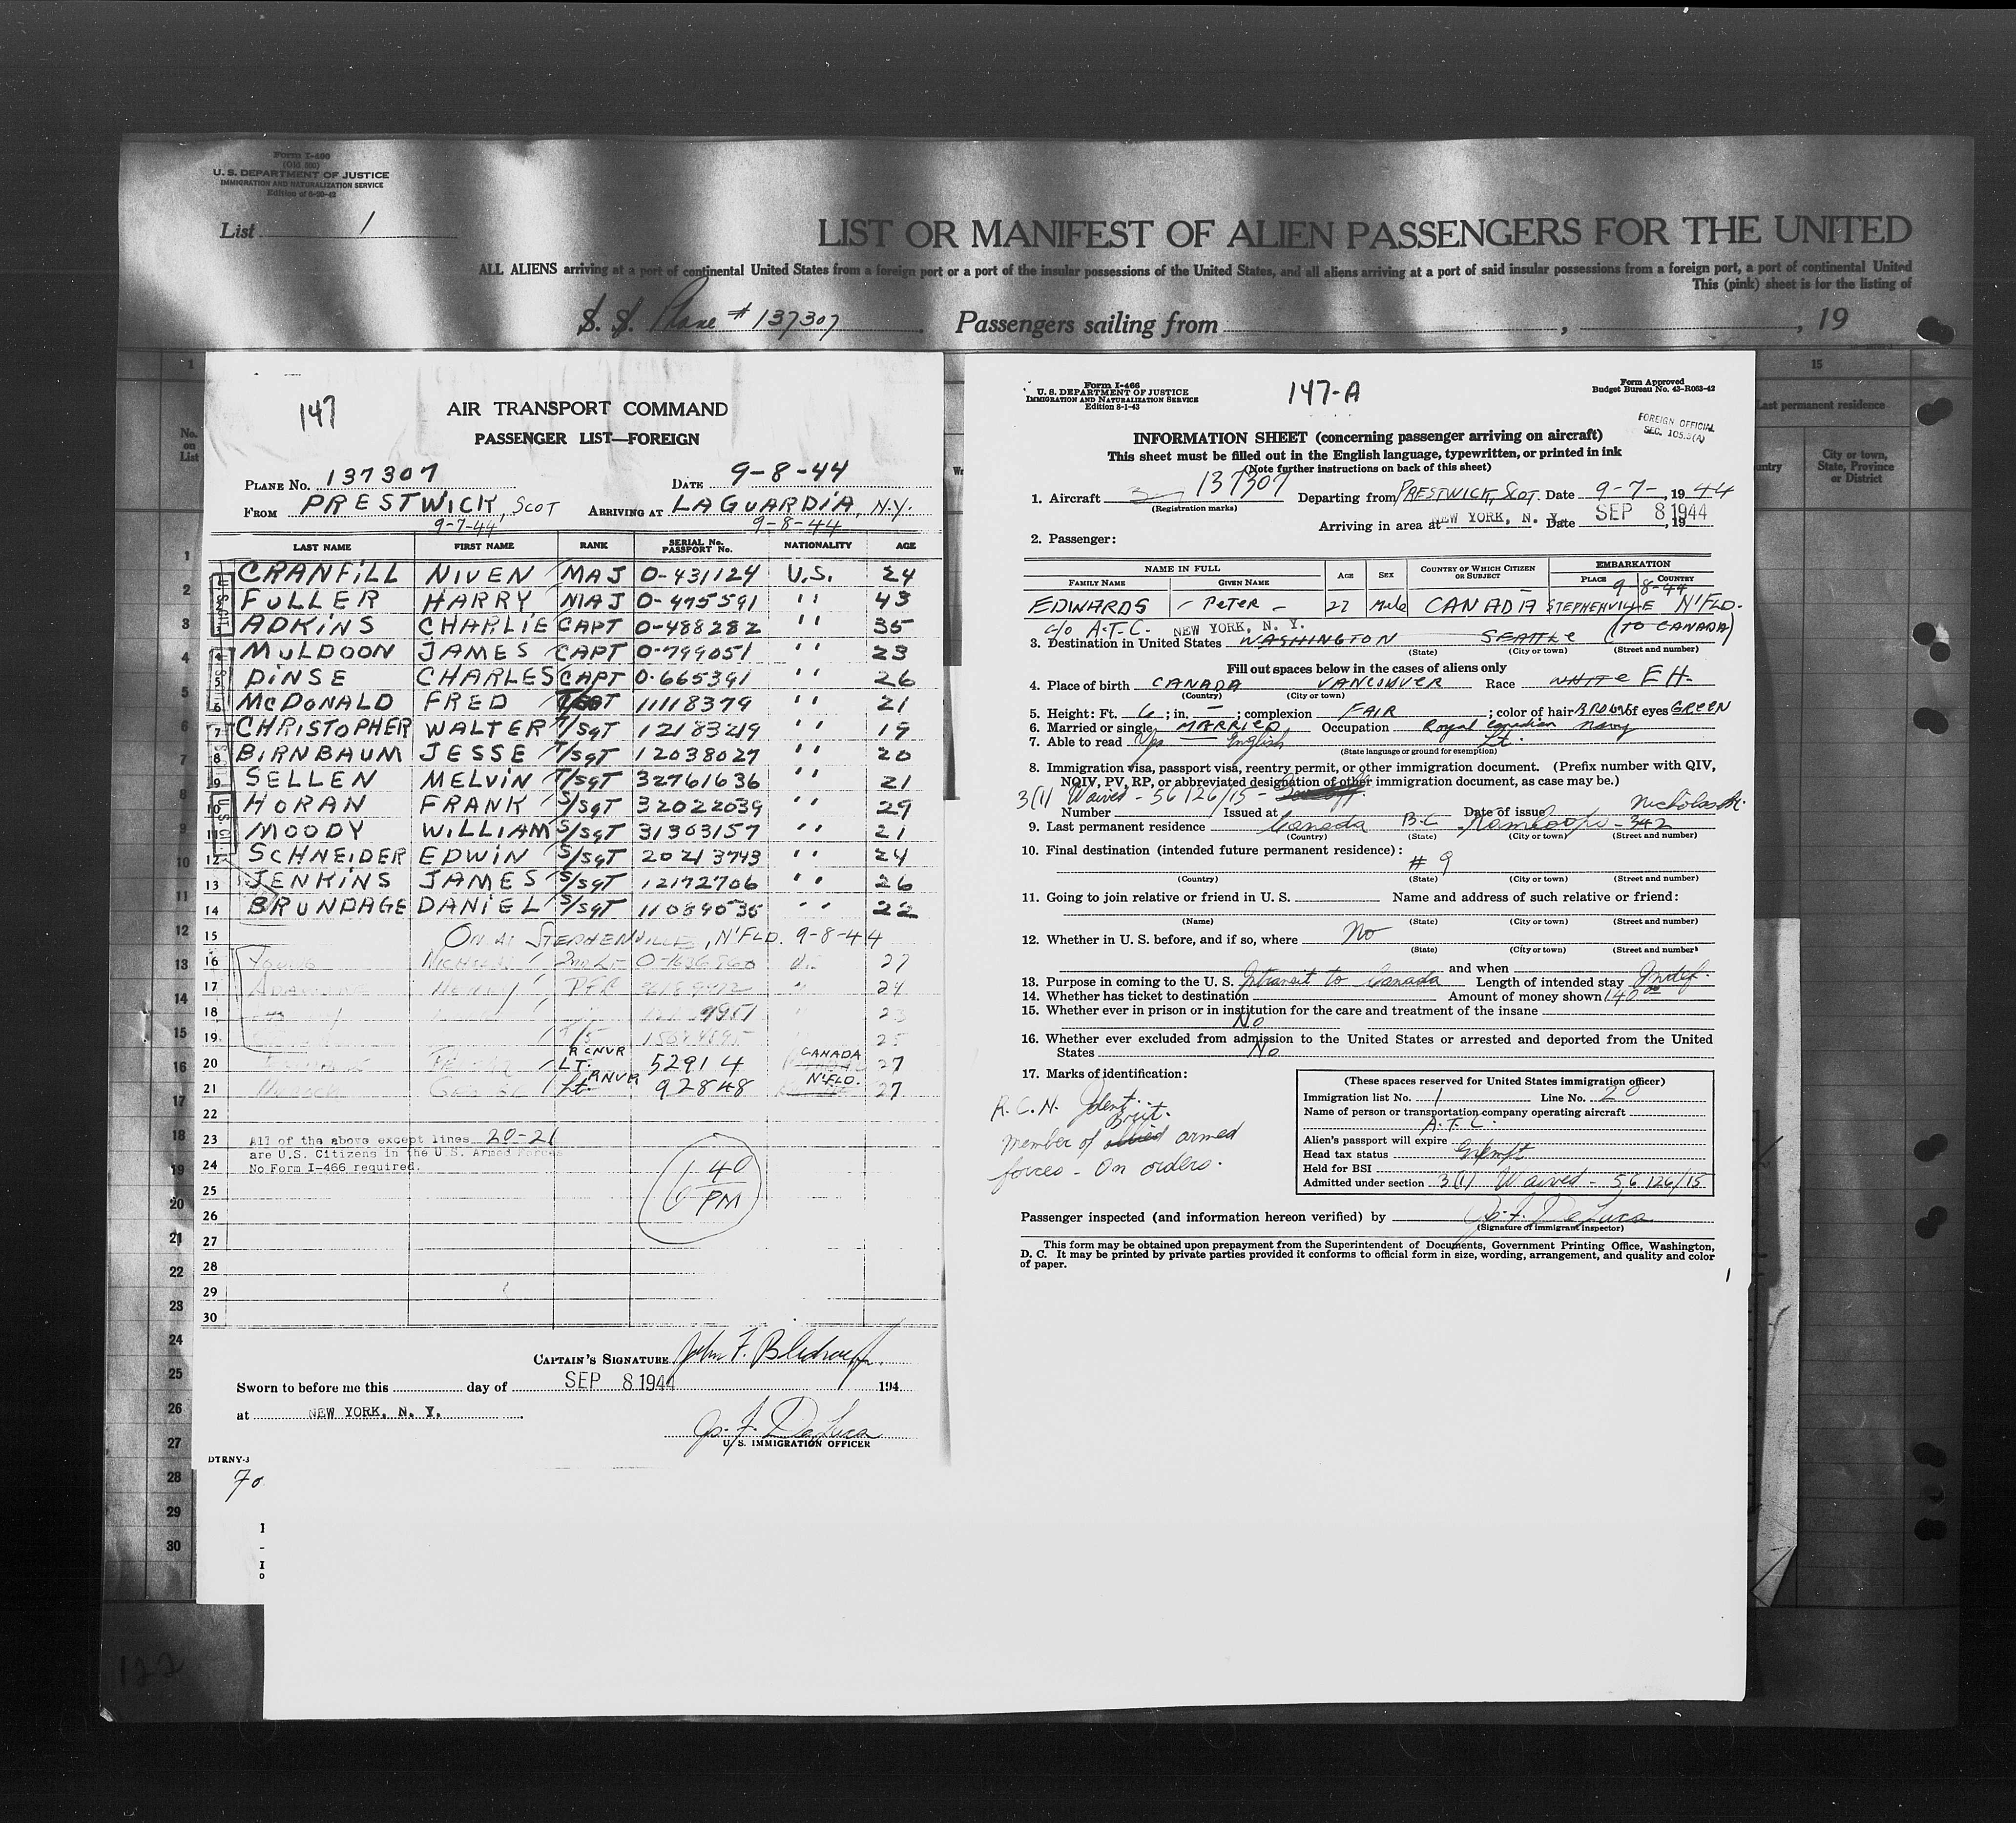 Form I-466
(Old 500)
U. S. DEPARTMENT OF JUSTICE
IMMIGRATION AND NATURALIZATION SERVICE
List 1
LIST OR MANIFEST OF ALIEN PASSENGERS FOR THE UNITED
ALL ALIENS arriving at a port of continental United States from a foreign port or a port of the insular possessions of the United States, and all aliens arriving at a port of said insular possessions from a foreign port, a port of continental United
This (pink) sheet is for the listing of
S. S. Plane # 137307 Passengers sailing from , , 19
147
AIR TRANSPORT COMMAND
PASSENGER LIST—FOREIGN
PLANE No. 137307 DATE 9-8-44
FROM PRESTWICK, SCOT ARRIVING AT LAGUARDIA, N.Y.
9-7-44 9-8-44
LAST NAME FIRST NAME RANK SERIAL No. PASSPORT No. NATIONALITY AGE
1 CRANFILL NIVEN MAJ O-431124 U.S. 24
2 FULLER HARRY MAJ O-475591 '' 43
3 ADKINS CHARLIE CAPT O-488282 '' 35
4 MULDOON JAMES CAPT O-799051 '' 23
5 DINSE CHARLES CAPT O-665391 '' 26
6 McDONALD FRED 11118379 '' 21
7 CHRISTOPHER WALTER T/SGT 12183219 '' 19
8 BIRNBAUM JESSE T/SGT 12038027 '' 20
9 SELLEN MELVIN T/SGT 32761636 '' 21
10 HORAN FRANK S/SGT 32022039 '' 29
11 MOODY WILLIAM S/SGT 31303157 '' 21
12 SCHNEIDER EDWIN S/SGT 20213743 '' 24
13 JENKINS JAMES S/SGT 12172706 '' 26
14 BRUNDAGE DANIEL S/SGT 11089035 '' 22
15 ON AT STEPHENVILLE, N'FLD. 9-8-44
16 2nd Lt O-1636860 27
17 PFC 24
18 23
19 T/5 25
20 RCNVR LT. 52914 CANADA 27
21 RNVR Lt. 92848 N'FLD. 27
22
23 All of the above except lines 20-21
are U.S. Citizens in the U.S. Armed Forces
24 No Form I-466 required.
25
26
27
28
29
30
6 40 PM
CAPTAIN'S SIGNATURE John F.
Sworn to before me this day of SEP 8 1944 194
at NEW YORK, N. Y.
Jos. F. DeLuca
U. S. IMMIGRATION OFFICER
DTRNY-3
70
Form I-466
U. S. DEPARTMENT OF JUSTICE
IMMIGRATION AND NATURALIZATION SERVICE
Edition 8-1-43
147-A
Form Approved
Budget Bureau No. 43-R063-42
FOREIGN OFFICIAL
SEC. 105.3(A)
INFORMATION SHEET (concerning passenger arriving on aircraft)
This sheet must be filled out in the English language, typewritten, or printed in ink
(Note further instructions on back of this sheet)
1. Aircraft 137307 Departing from PRESTWICK, SCOT. Date 9-7-, 1944
(Registration marks)
Arriving in area at NEW YORK, N. Y. Date SEP 8 1944, 19
2. Passenger:
NAME IN FULL AGE SEX COUNTRY OF WHICH CITIZEN OR SUBJECT EMBARKATION
FAMILY NAME GIVEN NAME PLACE COUNTRY
9-8-44
EDWARDS - PETER - 27 Male CANADA STEPHENVILLE N'FLD.
c/o A.T.C. NEW YORK, N. Y. (TO CANADA)
3. Destination in United States WASHINGTON SEATTLE
(State) (City or town) (Street and number)
Fill out spaces below in the cases of aliens only
4. Place of birth CANADA VANCOUVER Race WHITE EH.
(Country) (City or town)
5. Height: Ft. 6; in. –; complexion FAIR; color of hair BROWN of eyes GREEN
6. Married or single MARRIED Occupation Royal Canadian Navy
7. Able to read Yes English Lt.
(State language or ground for exemption)
8. Immigration visa, passport visa, reentry permit, or other immigration document. (Prefix number with QIV,
NQIV, PV, RP, or abbreviated designation of other immigration document, as case may be.)
3(1) Waived - 56126/15 -
Number Issued at Date of issue
9. Last permanent residence Canada B.C. Kamloops - 342 Nicholas St.
(Country) (State) (City or town) (Street and number)
10. Final destination (intended future permanent residence):
# 9
(Country) (State) (City or town) (Street and number)
11. Going to join relative or friend in U. S. Name and address of such relative or friend:
(Name) (State) (City or town) (Street and number)
12. Whether in U. S. before, and if so, where No
(State) (City or town) (Street and number)
and when
13. Purpose in coming to the U. S. Intransit to Canada Length of intended stay Indef.
14. Whether has ticket to destination Amount of money shown 140 00
15. Whether ever in prison or in institution for the care and treatment of the insane
No
16. Whether ever excluded from admission to the United States or arrested and deported from the United
States No
17. Marks of identification:
R.C.N. Ident.
Brit.
Member of allied armed
forces - On orders.
(These spaces reserved for United States immigration officer)
Immigration list No. 1 Line No. 20
Name of person or transportation company operating aircraft
A.T.C.
Alien's passport will expire
Head tax status Exempt
Held for BSI
Admitted under section 3(1) Waived - 56126/15
Passenger inspected (and information hereon verified) by Jos. F. DeLuca
(Signature of immigrant inspector)
This form may be obtained upon prepayment from the Superintendent of Documents, Government Printing Office, Washington,
D. C. It may be printed by private parties provided it conforms to official form in size, wording, arrangement, and quality and color
of paper.
15
Last permanent residence
City or town,
State, Province
or District
No.
on
List
122